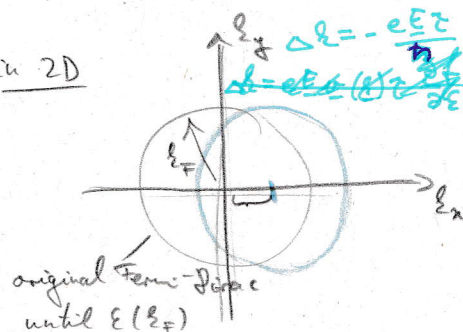 in 2D
k_y
Δk = - eEτ/ħ
k_F
k_x
original Fermi-Dirac
until ε(k_F)